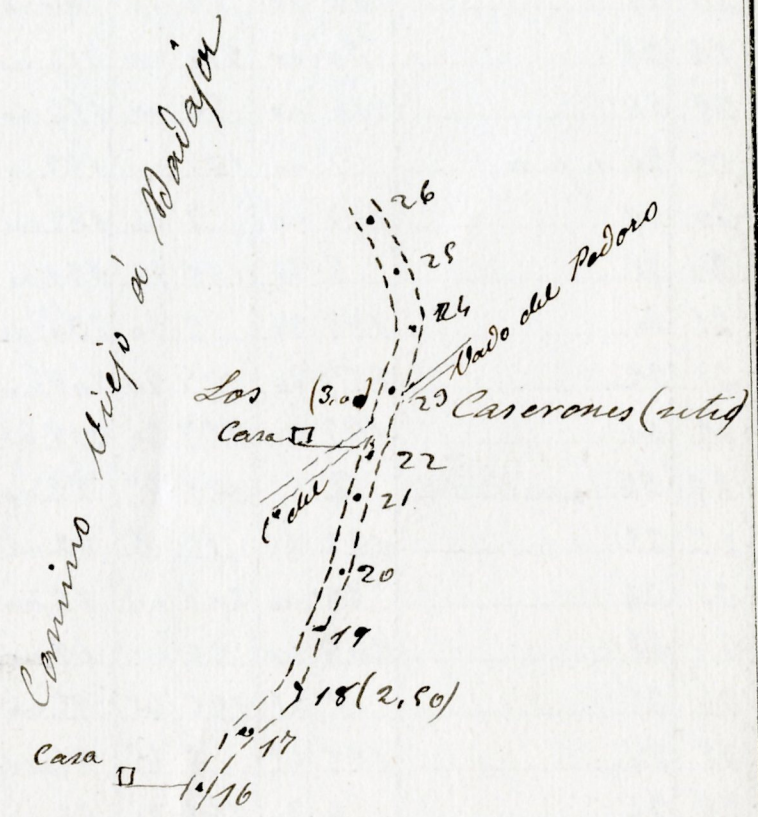 Camino viejo á Badajoz
26
25
24
Vado del Pedoro
Los (3,00) 23 Caserones (sitio)
Casa
22
Cº del
21
20
19
18 (2,50)
17
Casa
16